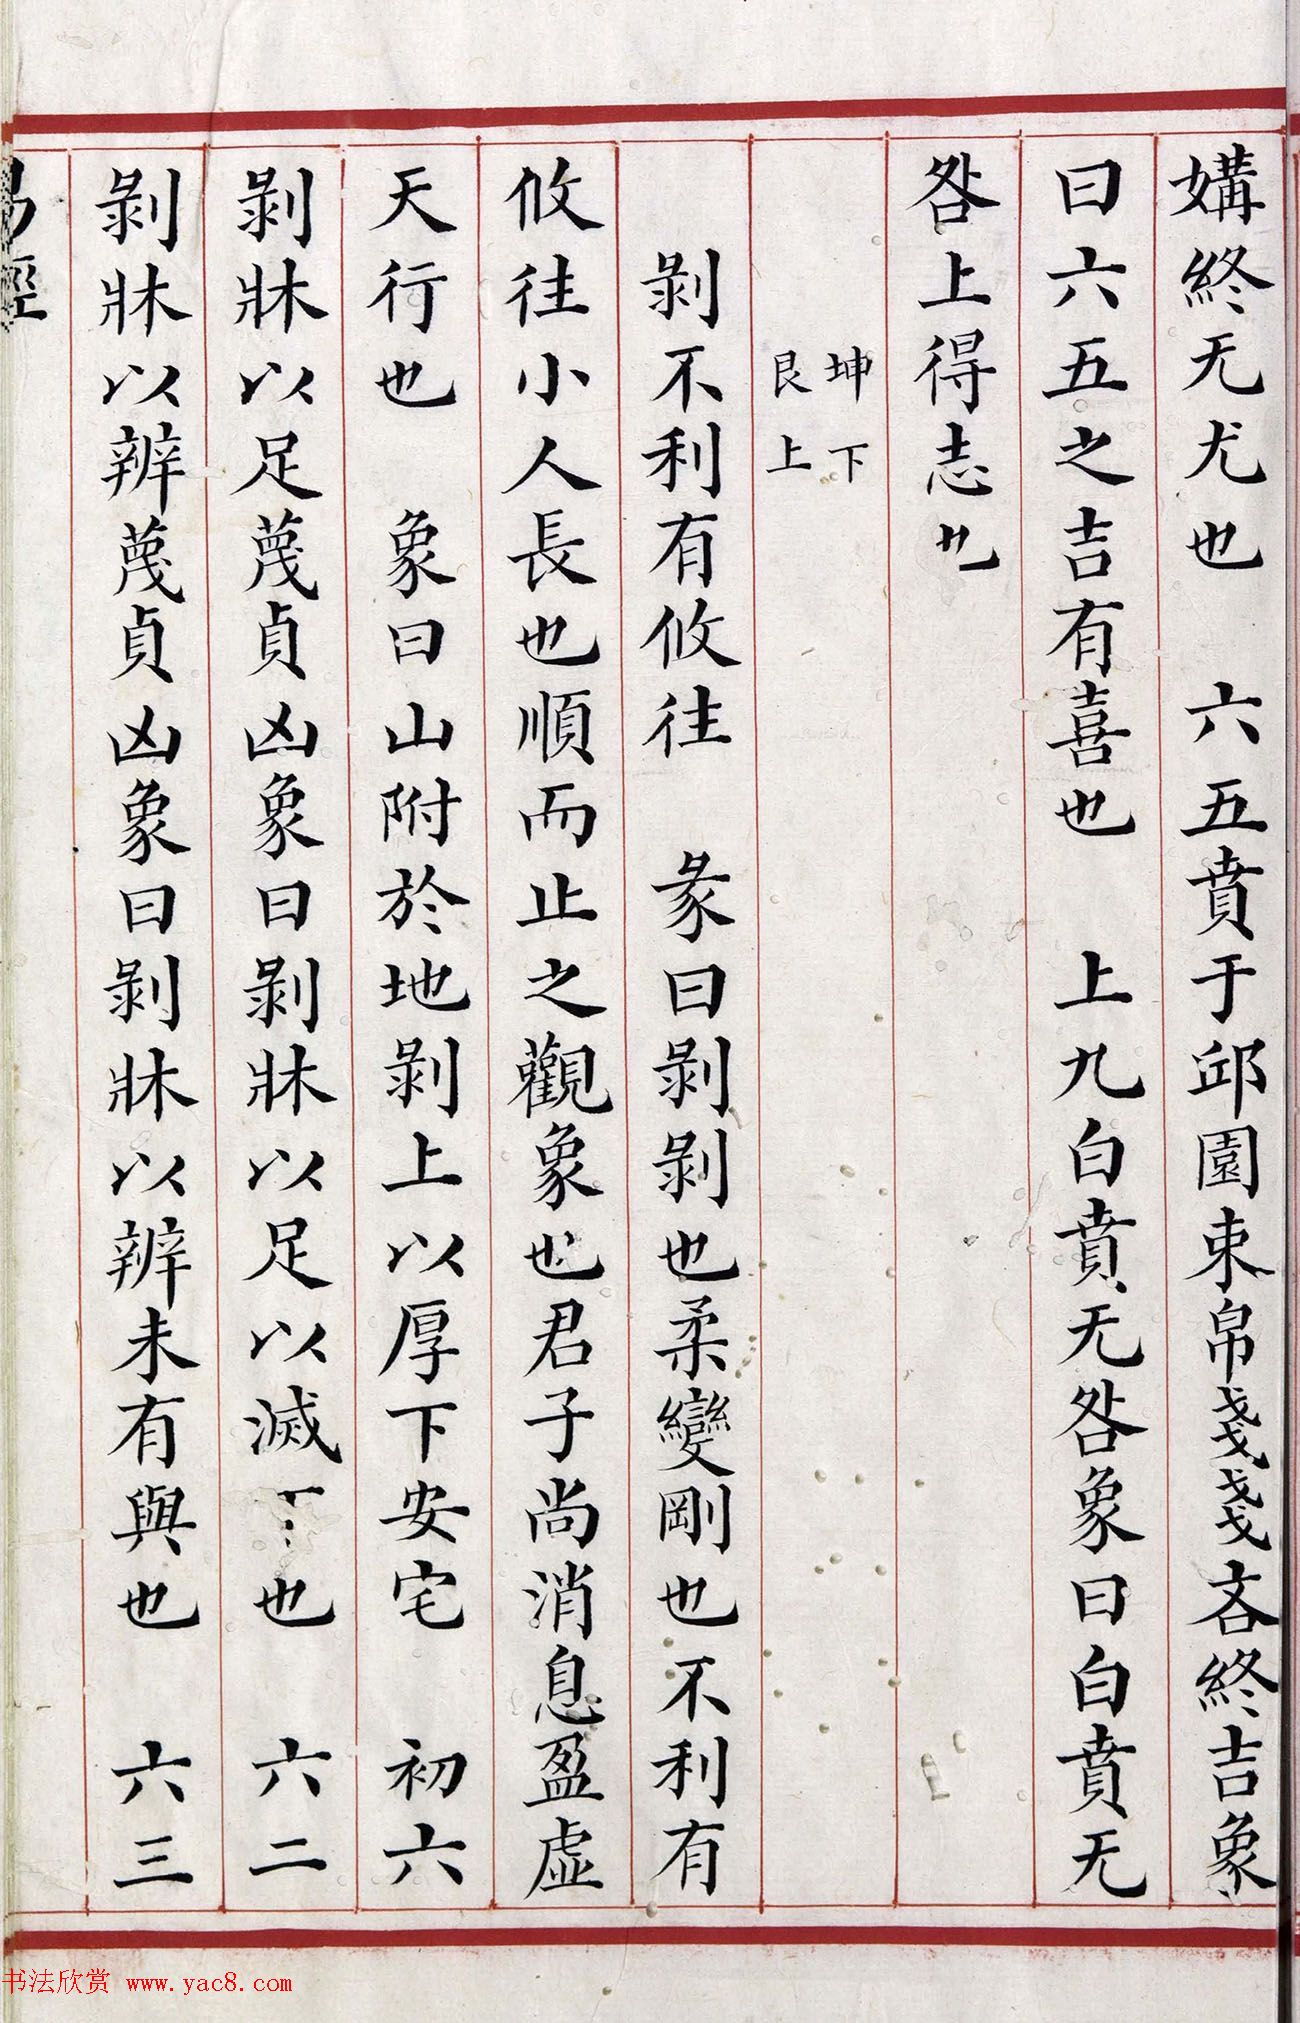 媾終无尤也　六五賁于邱園束帛戔戔吝終吉象
曰六五之吉有喜也　上九白賁无咎象曰白賁无
咎上得志也
坤下
艮上
剝不利有攸往　彖曰剝剝也柔變剛也不利有
攸往小人長也順而止之觀象也君子尚消息盈虛
天行也　象曰山附於地剝上以厚下安宅　初六
剝牀以足蔑貞凶象曰剝牀以足以滅也　六二
剝牀以辨蔑貞凶象曰剝牀以辨未有與也　六三
易經
书法欣赏 www.yac8.com